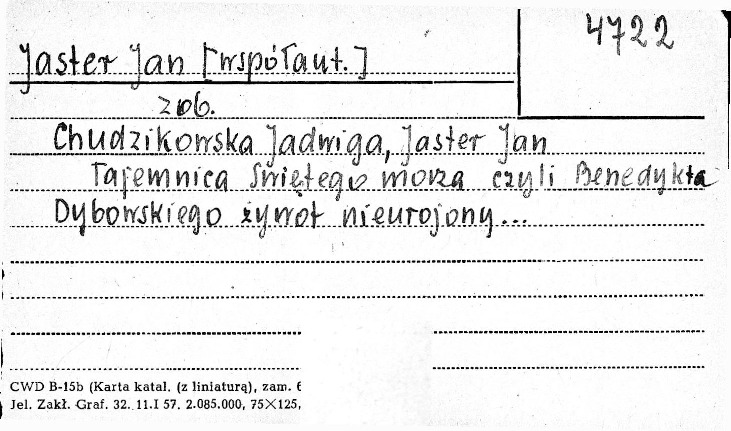 4722
Jaster Jan [współaut.]
zob.
Chudzikowska Jadwiga, Jaster Jan
Tajemnica Świętego morza czyli Benedykta
Dybowskiego żywot nieurojony...
CWD B-15b (Karta katal. (z liniaturą), zam. 6
Jel. Zakł. Graf. 32. 11.I 57. 2.085.000, 75×125,